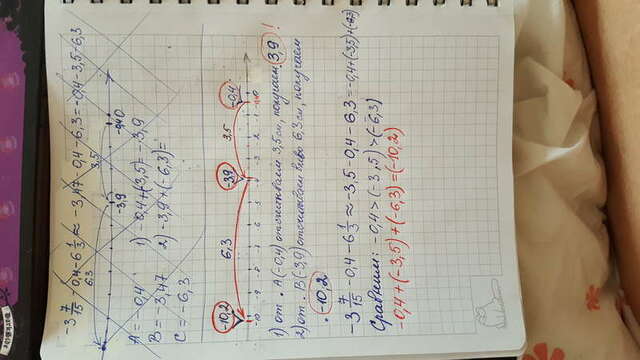 -3 7/15 - 0,4 - 6 1/3 ≈ -3,47 - 0,4 - 6,3 = -0,4 - 3,5 - 6,3
6,3 3,5
-3,9 -0,4 0
A = -0,4 1) -0,4 + (-3,5) = -3,9
B = -3,47 2) -3,9 + (-6,3) =
C = -6,3
-10,2 6,3 -3,9 3,5 -0,4
-10 -9 -8 -7 -6 -5 -4 -3 -2 -1 0
1) от . A (-0,4) отсчитываем 3,5 см, получаем 3,9 !
2) от . B (-3,9) отсчитываем влево 6,3 см, получаем
. -10,2
-3 7/15 - 0,4 - 6 1/3 ≈ -3,5 - 0,4 - 6,3 = -0,4 + (-3,5) + (-6,3)
Сравним: -0,4 > (-3,5) > (-6,3)
-0,4 + (-3,5) + (-6,3) = (-10,2)